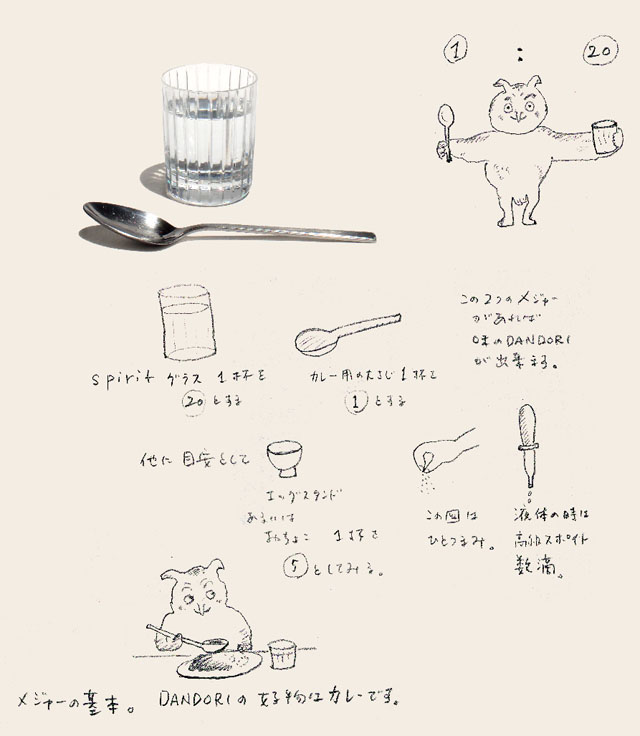 1 : 20
spirit グラス 1杯を
20 とする
カレー用の大さじ1杯を
1 とする
この2つのメジャー
があれば
味のDANDORI
が出来ます。
他に目安として
エッグスタンド
あるいは
おちょこ 1杯を
5 としてみる。
この図は
ひとつまみ。
液体の時は
高級スポイト
数滴。
メジャーの基本。 DANDORIの好物はカレーです。